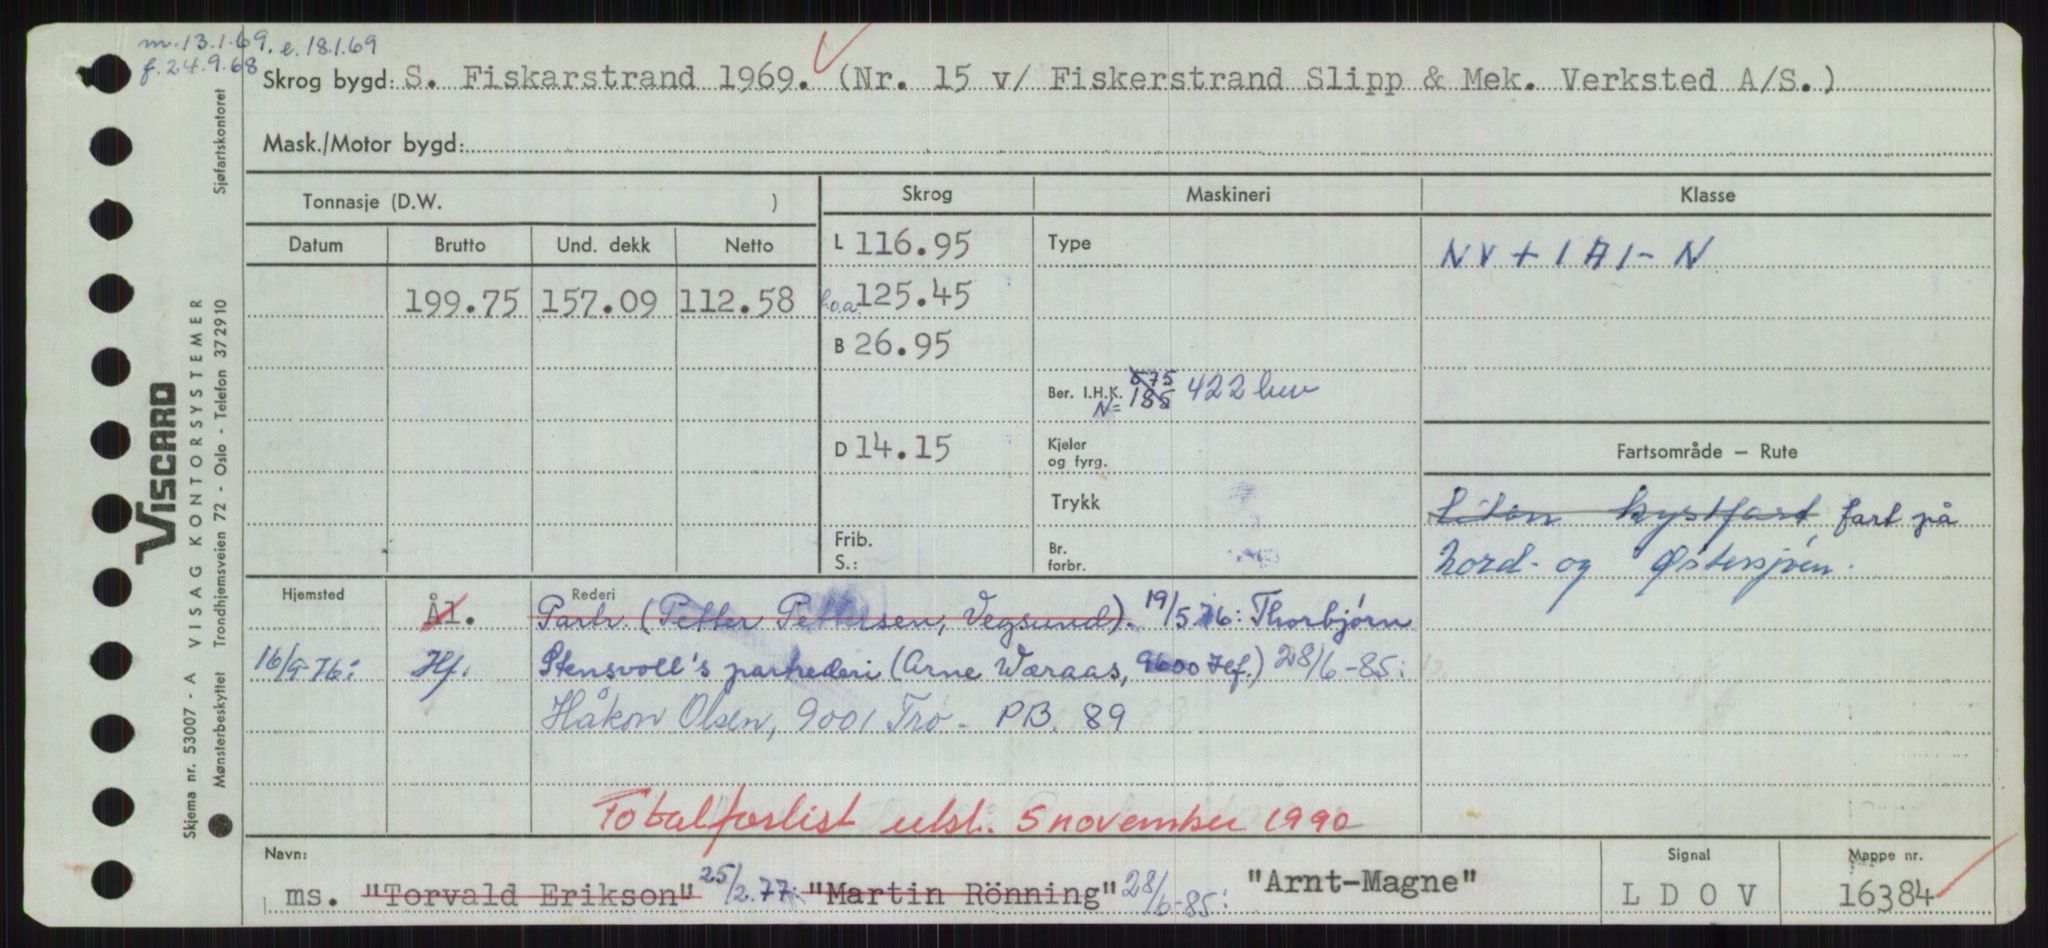 m. 13.1.69. e. 18.1.69
f. 24.9.68
Skrog bygd: S. Fiskarstrand 1969. (Nr. 15 v/ Fiskerstrand Slipp & Mek. Verksted A/S.)
Mask./Motor bygd:
Tonnasje (D.W. )
Skrog
Maskineri
Klasse
Datum Brutto Und. dekk Netto
L 116.95
Type
NV + 1A1 - N
199.75 157.09 112.58
l.o.a. 125.45
B 26.95
Ber. I.H.K. 575
N= 185 422 hw
D 14.15
Kjeler
og fyrg.
Fartsområde — Rute
Trykk
Liten kystfart fart på
Nord- og Østersjøen.
Frib.
S.:
Br.
forbr.
Hjemsted Rederi
Ål. Partr. (Petter Pettersen, Vegsund). 19/5 76: Thorbjørn
16/9-76: Hf. Stensvoll's partrederi (Arne Wæraas, 9600 Hf.) 28/6-85:
Håkon Olsen, 9001 Trø - P.B. 89
Totalforlist utsl. 5 november 1990
Navn:
Signal
Mappe nr.
ms. "Torvald Erikson" 25/2.77: "Martin Rönning" 28/6-85: "Arnt-Magne"
L D O V
16384
Skjema nr. 53007 - A VISAG KONTORSYSTEMER
VISCARD
Mønsterbeskyttet Trondhjemsveien 72 - Oslo - Telefon 372910 Sjøfartskontoret